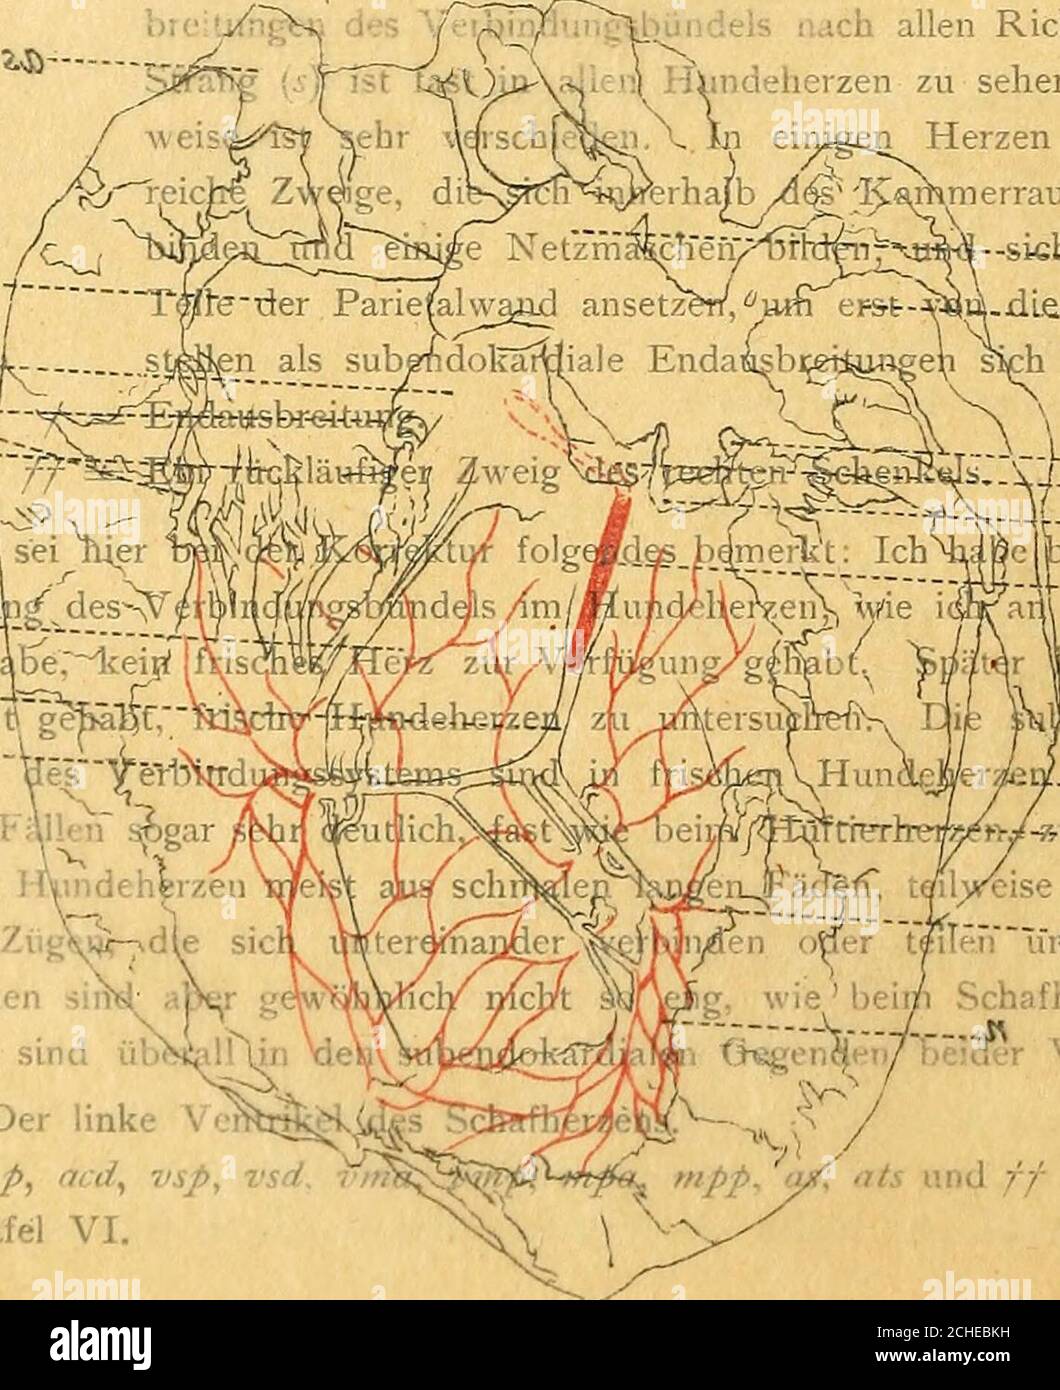 breitungen des Verbindungsbündels nach allen Ric
as
Strang (s) ist fast in allen Hundeherzen zu sehen
weise ist sehr verschieden. In einigen Herzen
reiche Zweige, die sich innerhalb des Kammerrau
binden und einige Netzmaschen bilden, und sich
Teile der Parietalwand ansetzen, um erst von die
stellen als subendokardiale Endausbreitungen sich
† = Endausbreitung.
†† = Ein rückläufiger Zweig des rechten Schenkels.
sei hier bei der Korrektur folgendes bemerkt: Ich habe b
ng des Verbindungsbündels im Hundeherzen, wie ich an
abe, kein frisches Herz zur Verfügung gehabt. Später
t gehabt, frische Hundeherzen zu untersuchen. Die sub
des Verbindungssystems sind in frischen Hundeherzen
Fällen sogar sehr deutlich, fast wie beim Huftierherzen, z
Hundeherzen meist aus schmalen langen Fäden, teilweise
Zügen, die sich untereinander verbinden oder teilen un
en sind aber gewöhnlich nicht so eng, wie beim Schafh
n
sind überall in den subendokardialen Gegenden beider V
Der linke Ventrikel des Schafherzens.
p, acd, vsp, vsd, vma, vmp, mpa, mpp, as, ats und ††
afel VI.
alamy
Image ID: 2CHEBKH
www.alamy.com